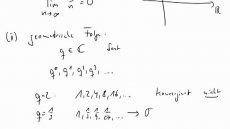 lim 1/n = 0
n→∞
ℝ
(i) geometrische Folge:
q ∈ ℂ fest
q⁰, q¹, q², q³, ...
q=2: 1, 2, 4, 8, 16, ... konvergiert nicht
q=1/2 1, 1/2, 1/4, ... → 0